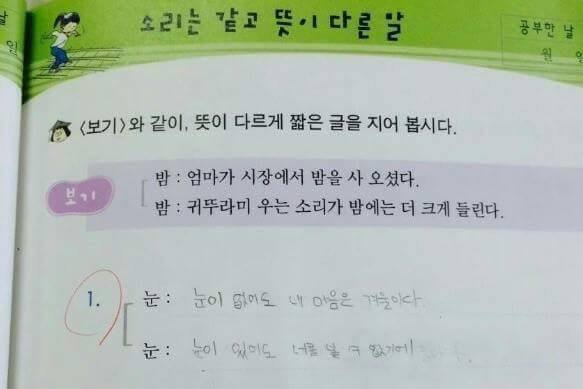 소리는 같고 뜻이 다른 말
공부한 날
월 일
<보기>와 같이, 뜻이 다르게 짧은 글을 지어 봅시다.
보기
밤 : 엄마가 시장에서 밤을 사 오셨다.
밤 : 귀뚜라미 우는 소리가 밤에는 더 크게 들린다.
1. 눈 : 눈이 없어도 내 마음은 겨울이다
눈 : 눈이 있어도 너를 볼 수 없기에